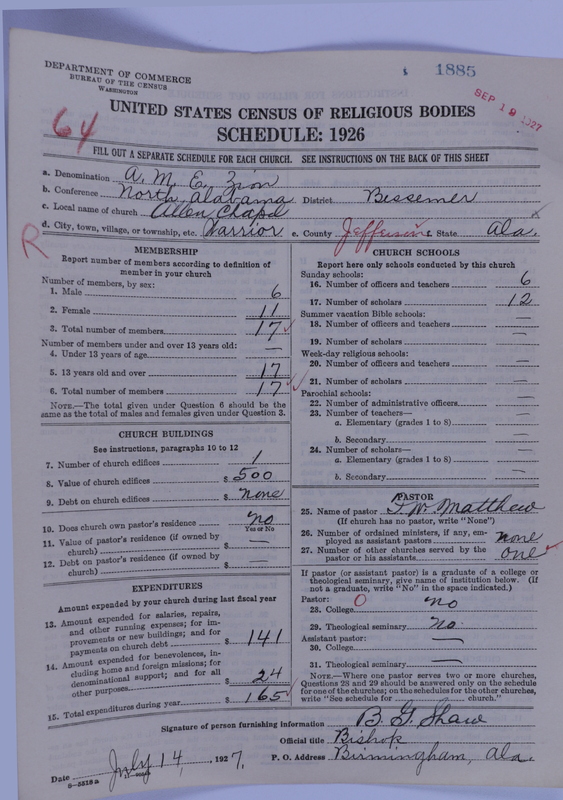 1885
SEP 19 1927
DEPARTMENT OF COMMERCE
BUREAU OF THE CENSUS
WASHINGTON
UNITED STATES CENSUS OF RELIGIOUS BODIES
SCHEDULE: 1926
64
FILL OUT A SEPARATE SCHEDULE FOR EACH CHURCH. SEE INSTRUCTIONS ON THE BACK OF THIS SHEET
a. Denomination A. M. E. Zion
b. Conference North Alabama District Bessemer
c. Local name of church Allen Chapel
d. City, town, village, or township, etc. Warrior e. County Jefferson f. State Ala.
R
MEMBERSHIP
Report number of members according to definition of
member in your church
Number of members, by sex:
1. Male 6
2. Female 11
3. Total number of members 17
Number of members under and over 13 years old:
4. Under 13 years of age —
5. 13 years old and over 17
6. Total number of members 17
NOTE.—The total given under Question 6 should be the
same as the total of males and females given under Question 3.
CHURCH BUILDINGS
See instructions, paragraphs 10 to 12
7. Number of church edifices 1
8. Value of church edifices $ 500
9. Debt on church edifices $ none
10. Does church own pastor's residence no
Yes or No
11. Value of pastor's residence (if owned by
church) $ —
12. Debt on pastor's residence (if owned by
church) $ —
EXPENDITURES
Amount expended by your church during last fiscal year
13. Amount expended for salaries, repairs,
and other running expenses; for im-
provements or new buildings; and for
payments on church debt $ 141
14. Amount expended for benevolences, in-
cluding home and foreign missions; for
denominational support; and for all
other purposes $ 24
15. Total expenditures during year $ 165
CHURCH SCHOOLS
Report here only schools conducted by this church
Sunday schools:
16. Number of officers and teachers 6
17. Number of scholars 12
Summer vacation Bible schools:
18. Number of officers and teachers —
19. Number of scholars —
Week-day religious schools:
20. Number of officers and teachers —
21. Number of scholars —
Parochial schools:
22. Number of administrative officers —
23. Number of teachers—
a. Elementary (grades 1 to 8) —
b. Secondary —
24. Number of scholars—
a. Elementary (grades 1 to 8) —
b. Secondary —
PASTOR
25. Name of pastor Matthew
(If church has no pastor, write "None")
26. Number of ordained ministers, if any, em-
ployed as assistant pastors none
27. Number of other churches served by the
pastor or his assistants one
If pastor (or assistant pastor) is a graduate of a college or
theological seminary, give name of institution below. (If
not a graduate, write "No" in the space indicated.)
Pastor: 0
28. College no
29. Theological seminary no.
Assistant pastor:
30. College —
31. Theological seminary —
NOTE.—Where one pastor serves two or more churches,
Questions 28 and 29 should be answered only on the schedule
for one of the churches; on the schedules for the other churches,
write "See schedule for church."
Signature of person furnishing information B. G. Shaw
Official title Bishop
Date July 14, 1927. P. O. Address Birmingham, Ala.
8-5518a